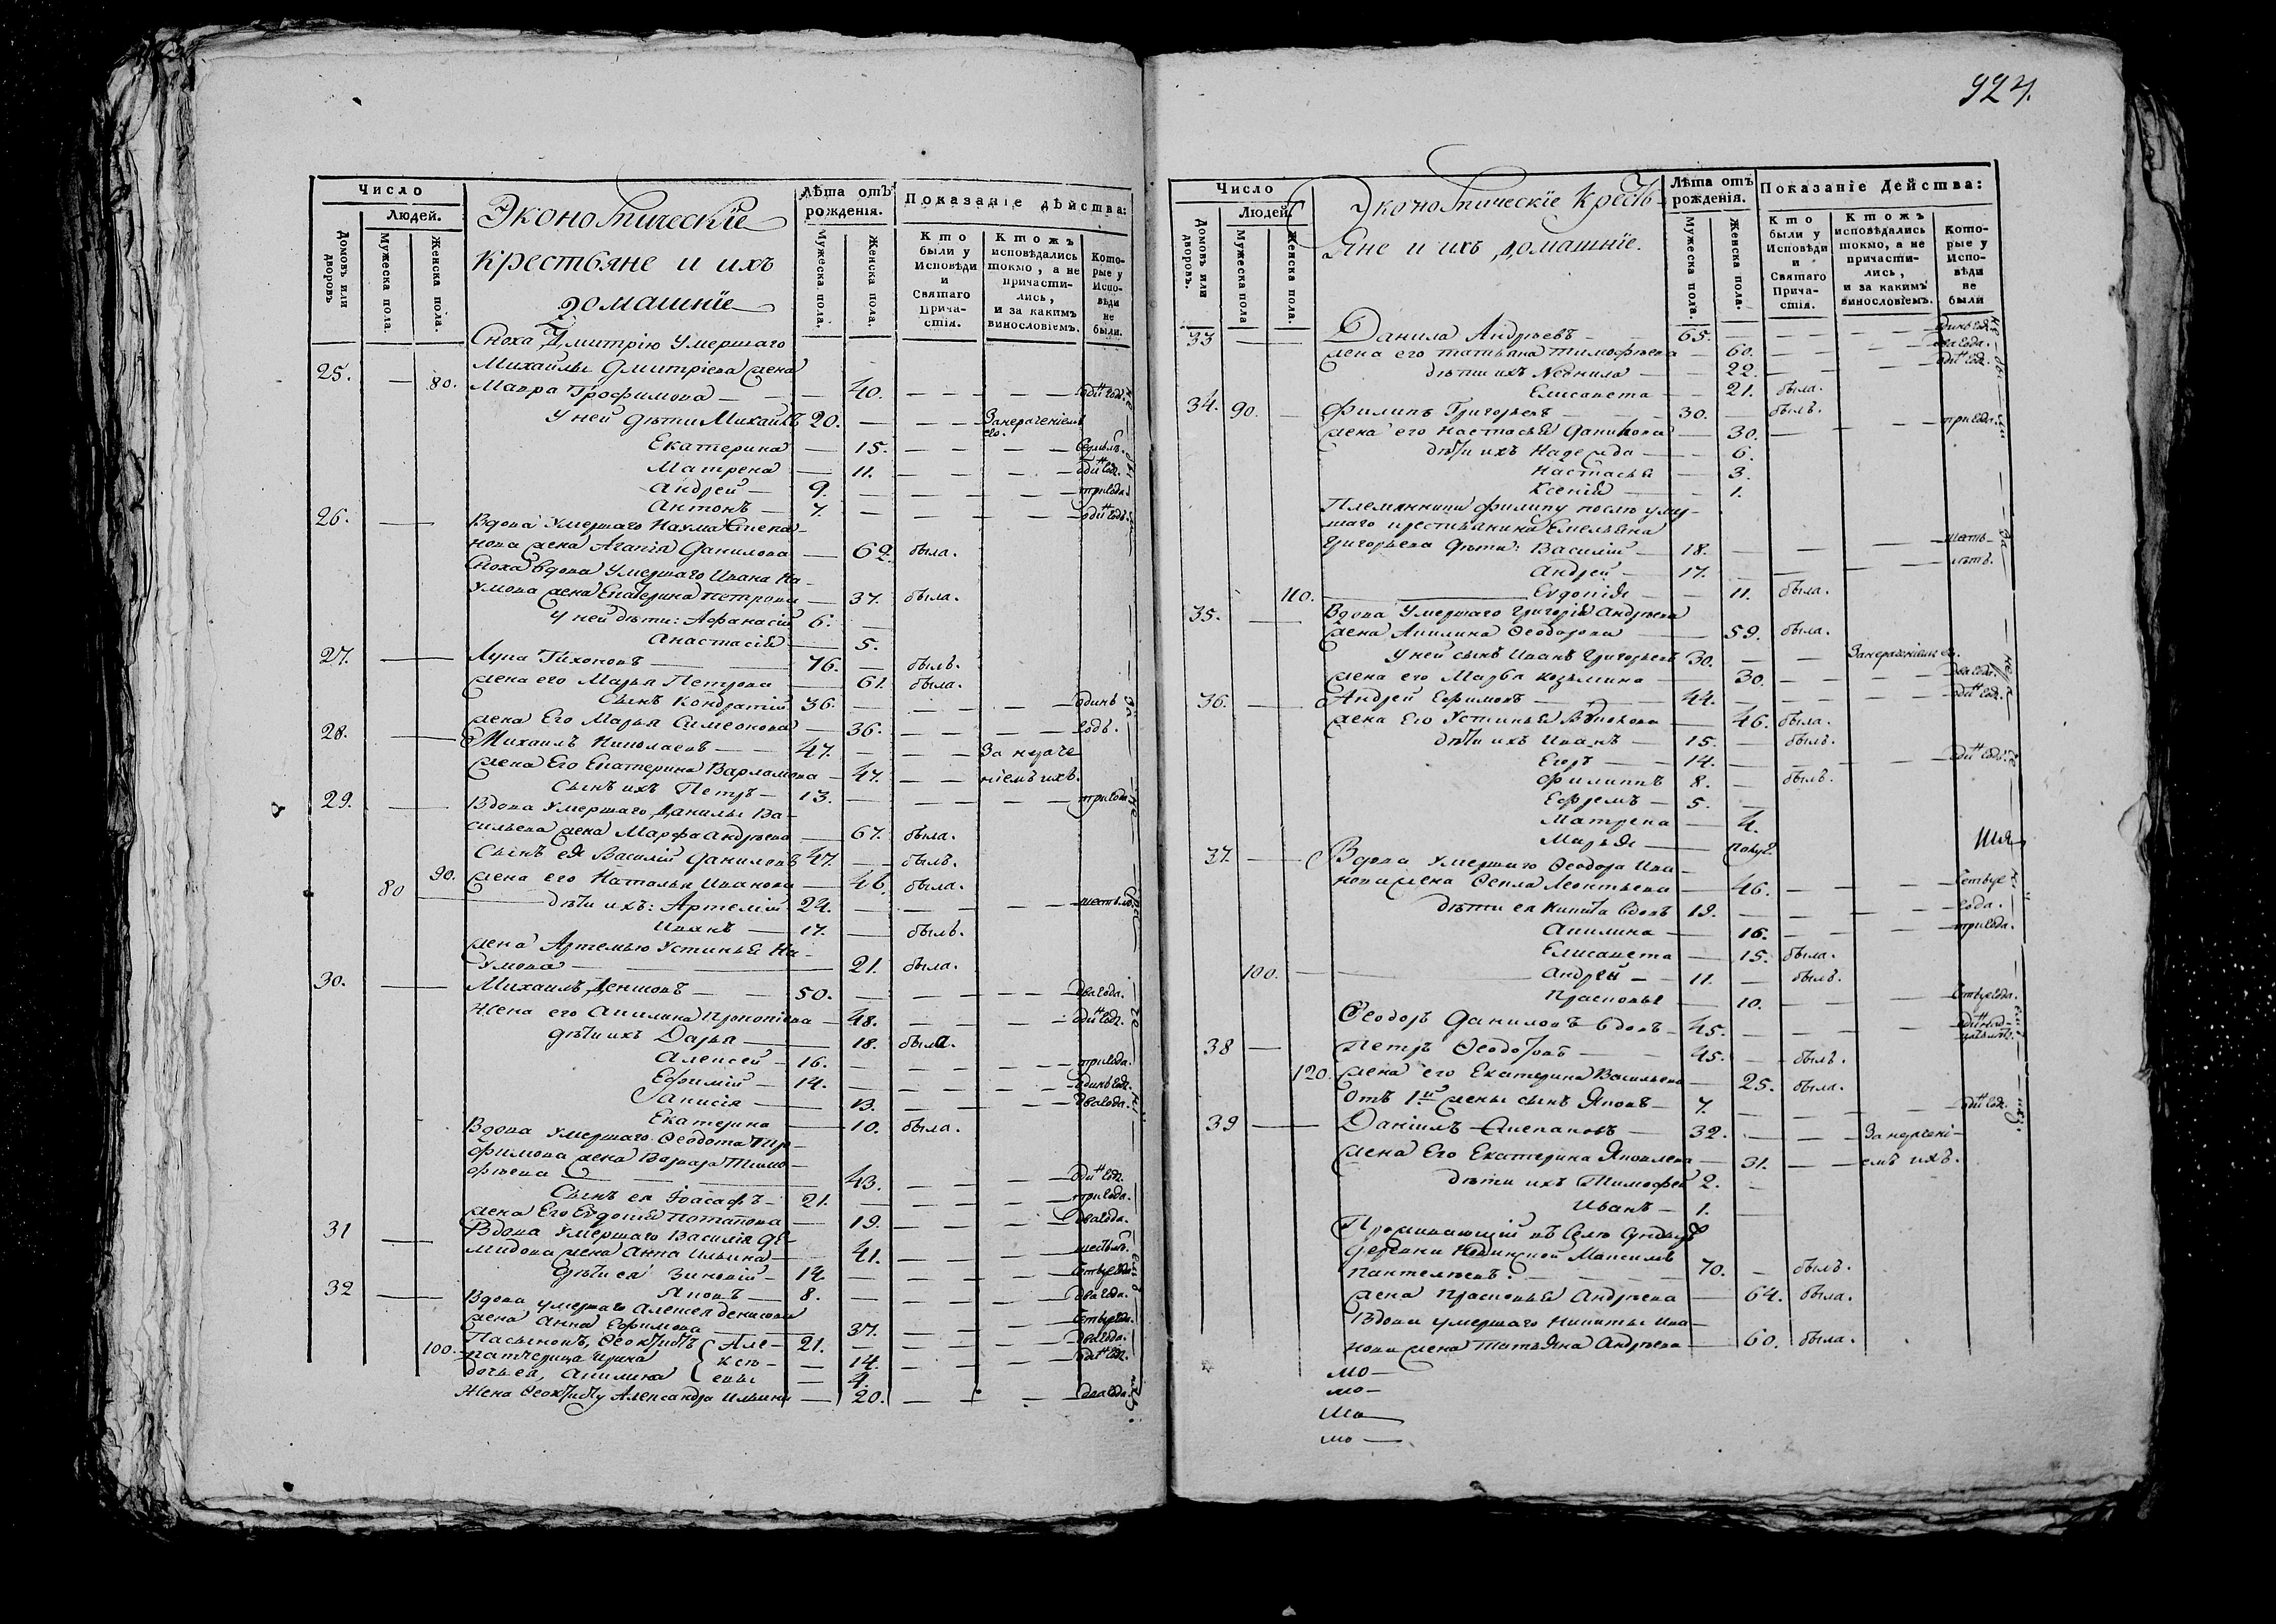 924.
Число
Людей.
Домовъ или дворовъ
Мужеска пола.
Женска пола.
Экономическіе
крестьяне и ихъ
домашніе
Лѣта отъ рожденія.
Мужеска пола.
Женска пола.
Показаніе дѣйства:
Кто были у Исповѣди и Святаго Прича-стія.
Ктожъ исповѣдались токмо, а не причасти-лись, и за какимъ винословіемъ.
Кото-рые у Испо-вѣди не были.
Сноха Дмитрію Умершаго
25. Михайлы Дмитріева жена
80. Мавра Трофимова 40. одинъ годъ.
У ней дѣти Михаилъ 20. За нераченіемъ его.
Екатерина 15.
Матрена 11. одинъ годъ.
Андрей 9. три года.
Антонъ 7. одинъ годъ.
26. Вдова Умершаго Наума Степа-
нова жена Агапія Данилова 62. была.
Сноха вдова Умершаго Ивана На-
умова жена Екатерина Петрова 37. была.
У ней дѣти: Афанасій 6.
Анастасія 5.
27. Лупа Тихоновъ 76. былъ.
жена его Марья Петрова 61. была.
Сынъ Кондратій 36. одинъ
жена Его Марья Симеонова 36. годъ.
28. Михаилъ Николаевъ 47. За нераче
жена Его Екатерина Варламова 47. ніемъ ихъ.
Сынъ ихъ Петръ 13. три года
29. Вдова Умершаго Данилы Ва-
сильева жена Марфа Андреева 67. была.
Сынъ ея Василій Даниловъ 47. былъ.
90. жена его Наталья Иванова 46. была.
80 дѣти ихъ: Артемій 24.
Иванъ 17. былъ.
жена Артемью Устинья На-
умова 21. была.
30. Михаилъ Денисовъ 50. два года.
Жена его Акилина Прокопіева 48. одинъ годъ.
дѣти ихъ Дарья 18. была.
Алексей 16. три года.
Ефимій 14. одинъ годъ.
13. два года.
Екатерина 10. была.
Вдова Умершаго Феодота Тро-
фимова жена Варвара Тимо-
фѣева 43. одинъ годъ.
Сынъ ея Іоасафъ 21. три года.
жена Его Евдокія Потапова 19. два года.
31 Вдова Умершаго Василія Де-
мидова жена Анна Ильина 41.
дѣти ея Зиновій 12. четыре года
Яковъ 8. два года.
32 Вдова умершаго Алексея Денисова
жена Анна Ефимова 37. четыре года.
Пасынокъ, Феоктистъ Але- 21. два года.
100. патчерица Ирина ксѣ- 14. одинъ годъ.
дочь ея, Акилина евы 4.
Жена Феоктисту Александра Ильина 20. два года.
Число
Людей.
Домовъ или дворовъ.
Мужеска пола
Женска пола.
Экономическіе Кресть-
яне и ихъ домашніе.
Лѣта отъ рожденія.
Мужеска пола.
Женска пола.
Показаніе дѣйства:
Кто были у Исповѣди и Святаго Прича-стія.
Ктожъ исповѣдались токмо, а не причасти-лись, и за какимъ винословіемъ.
Кото-рые у Испо-вѣди не были
33 Данила Андреевъ 65. одинъ годъ.
жена его Татьяна Тимофѣева 60. два года.
дѣти ихъ Неонила 22. одинъ годъ.
Елисавета 21. была.
34. 90. Филипъ Григорьевъ 30. былъ.
жена его Настасья Данилова 30. три года.
дѣти ихъ Надежда 6.
Настасья 3.
Ксенія 1.
Племянники Филипу послѣ умер-
шаго крестьянина Емельяна
Григорьева дѣти: Василій 18. шесть
Андрей 17. лѣтъ.
110. Евдокія 11. была.
35. Вдова Умершаго Григорія Андреева
жена Акилина Феодорова 59. была.
У ней сынъ Иванъ Григорьевъ 30. За нераченіемъ его.
жена его Марѳа Козьмина 30. два года.
36. Андрей Ефимовъ 44. одинъ годъ.
жена Его Устинья 46. была.
дѣти ихъ Иванъ 15. былъ.
Егоръ 14. одинъ годъ.
Филиппъ 8. былъ.
Ефремъ 5.
Матрена 4.
Марья полуг.
37. Вдова умершаго Феодора Ива-
нова жена Фекла Леонтьева 46. четыре
дѣти ея Никита вдовъ 19. года.
Акилина 16. три года.
Елисавета 15. была.
100. Андрей 11. былъ.
Прасковья 10. четыре года.
Феодоръ Даниловъ вдовъ 45.
38 Петръ Феодоровъ 45. былъ.
120. жена его Екатерина Васильева 25. была.
Отъ 1й жены сынъ Яковъ 7. одинъ годъ.
39 Даніилъ Степановъ 32. За нерачені-
жена Его Екатерина Яковлева 31. емъ ихъ.
дѣти ихъ Тимофей 2.
Иванъ 1.
Проживающій въ Селѣ
деревни Максимъ
Пантелѣевъ. 70. былъ.
жена Прасковья Андреева 64. была.
Вдова умершаго Никиты Ива-
нова жена Татьяна Андреева 60. была.
мо
мо
мо
мо